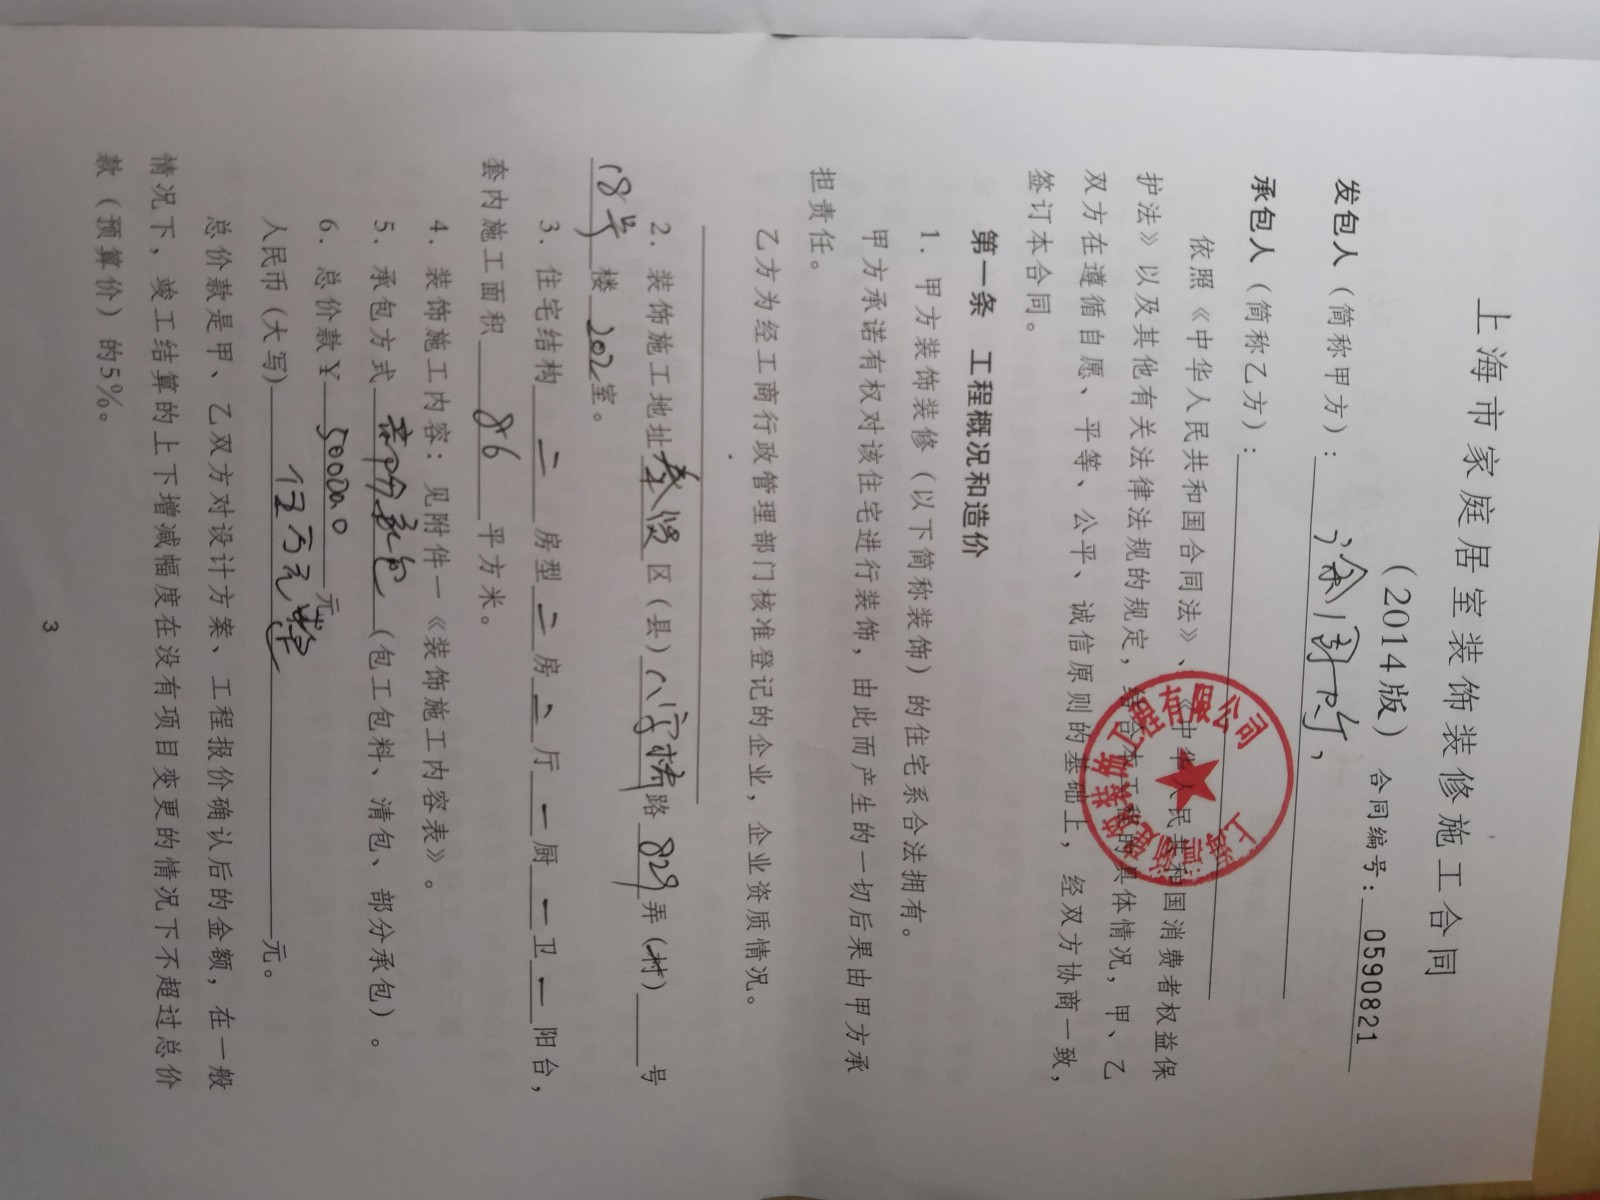 上海市家庭居室装饰装修施工合同
（2014版）
合同编号：0590821
发包人（简称甲方）：
承包人（简称乙方）：
上海 建筑装饰工程有限公司
依照《中华人民共和国合同法》、《中华人民共和国消费者权益保
护法》以及其他有关法律法规的规定，结合本工程的具体情况，甲、乙
双方在遵循自愿、平等、公平、诚信原则的基础上，经双方协商一致，
签订本合同。
第一条 工程概况和造价
1．甲方装饰装修（以下简称装饰）的住宅系合法拥有。
甲方承诺有权对该住宅进行装饰，由此而产生的一切后果由甲方承
担责任。
乙方为经工商行政管理部门核准登记的企业，企业资质情况。
2．装饰施工地址奉贤区（县）八字桥路829弄（村）号
18号楼202室。
3．住宅结构二房型二房二厅一厨一卫一阳台，
套内施工面积86平方米。
4．装饰施工内容：见附件一《装饰施工内容表》。
5．承包方式部分承包（包工包料、清包、部分承包）。
6．总价款￥50000元
人民币（大写）伍万元整元。
总价款是甲、乙双方对设计方案、工程报价确认后的金额，在一般
情况下，竣工结算的上下增减幅度在没有项目变更的情况下不超过总价
款（预算价）的5%。
3